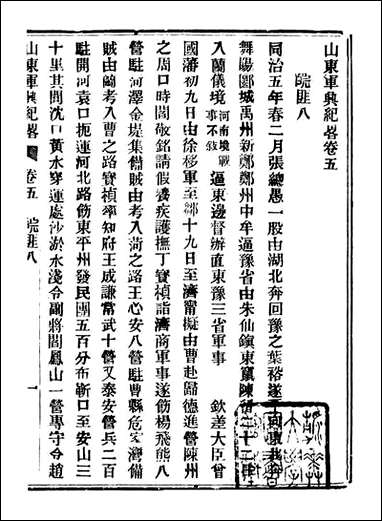 山東軍興紀畧卷五
皖匪八
同治五年春二月張總愚一股由湖北奔回豫之葉裕遂
舞陽郾城禹州新鄭鄭州中牟逼豫省由朱仙鎮東竄陳留二十二日
入蘭儀境河南境戰事不敘逼東邊督辦直東豫三省軍事 欽差大臣曾
國藩初九日由徐移軍至鄒十九日至濟甯擬由曹赴歸德進營陳州
之周口時閻敬銘請假養疾護撫丁寶楨詣濟商軍事遂飭楊飛熊八
營駐河澤金堤集備賊由考入菏之路王心安八營駐曹縣危家灣備
賊由蘭考入曹之路寶楨率知府王成謙常武十營又泰安營兵二百
駐開河袁口扼運河北路飭東平州發民團五百分布靳口至安山三
十里其間沈口黃水穿運處沙淤水淺令副將閻鳳山一營專守令趙
山東軍興紀畧 卷五 皖匪八 一